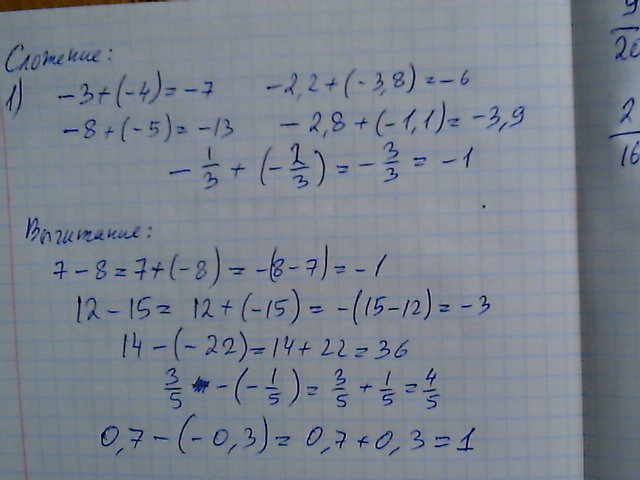 Сложение:
1) -3+(-4)=-7   -2,2+(-3,8)=-6
-8+(-5)=-13   -2,8+(-1,1)=-3,9
-1/3+(-2/3)=-3/3=-1
Вычитание:
7-8=7+(-8)=-(8-7)=-1
12-15=12+(-15)=-(15-12)=-3
14-(-22)=14+22=36
3/5-(-1/5)=3/5+1/5=4/5
0,7-(-0,3)=0,7+0,3=1
9/20
2/16